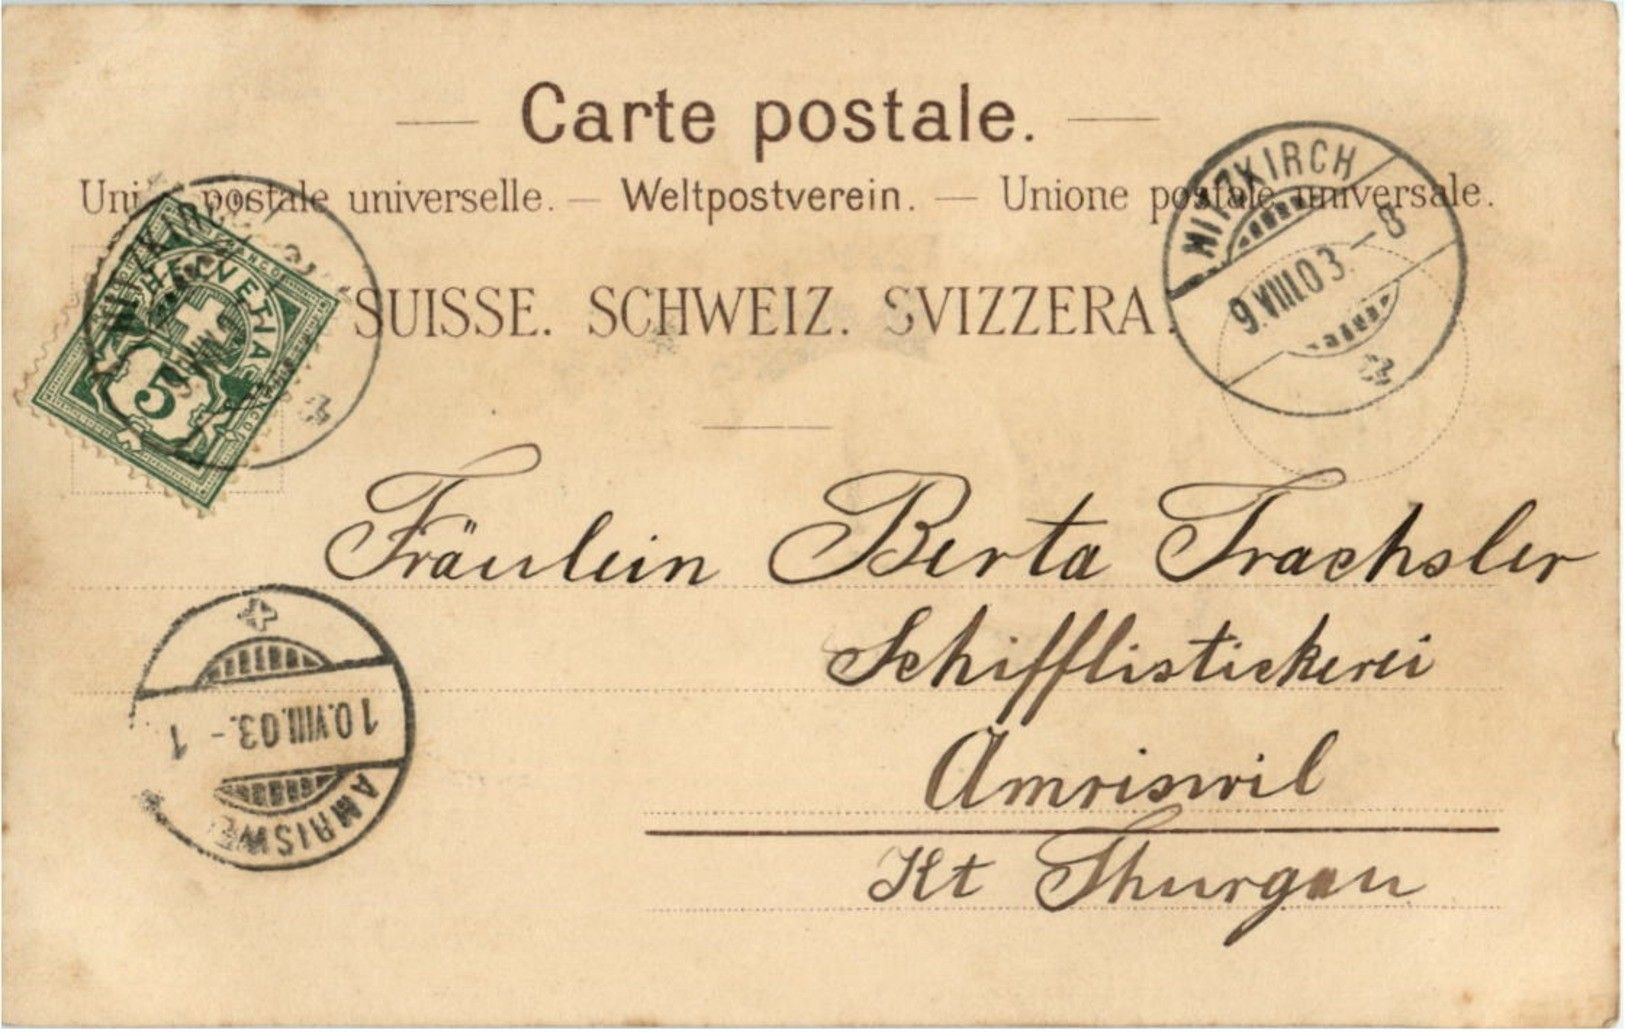 Carte postale.
Union postale universelle. — Weltpostverein. — Unione postale universale.
SUISSE. SCHWEIZ. SVIZZERA.
HITZKIRCH
9.VIII.03.–8
HITZKIRCH
HELVETIA
FRANCO
5
Fräulein Berta Trachsler
Schifflistickerei
Amriswil
Kt Thurgau
10.VIII.03.–1
AMRISWE